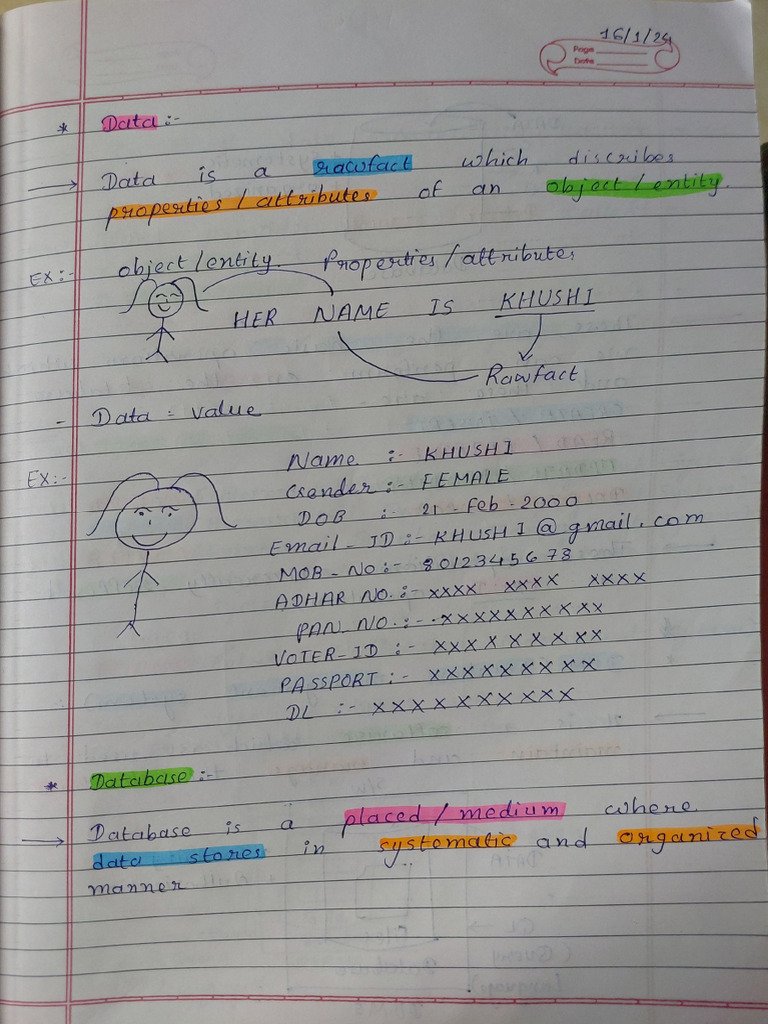 16/1/24
Page
Date
* Data :-
→ Data is a rawfact which discribes
properties / attributes of an object / entity.
EX :- object / entity Properties / attributes
HER NAME IS KHUSHI
Rawfact
- Data = value
EX :-
Name :- KHUSHI
Gender :- FEMALE
DOB :- 21 - Feb - 2000
Email - ID :- KHUSHI@gmail.com
MOB - NO :- 8012345678
ADHAR NO. :- xxxx xxxx xxxx
PAN NO. :- xxxxxxxxxx
VOTER - ID :- xxxxxxxxx
PASSPORT :- xxxxxxxxx
DL :- xxxxxxxxxx
* Database :-
→ Database is a placed / medium where
data stores in systematic and organized
manner